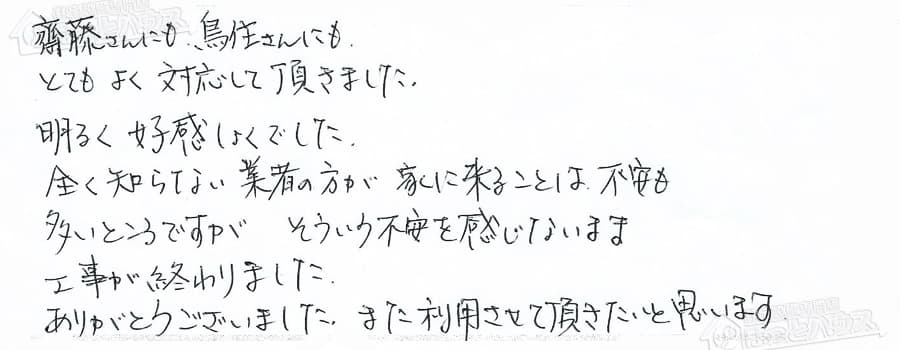 齋藤さんにも、鳥住さんにも、
とても よく 対応して 頂きました。
明るく 好感しょくでした。
全く 知らない 業者の方が 家に来ることは 不安も
多いところですが そういう不安を感じないまま
工事が終わりました。
ありがとうございました。また利用させて頂きたいと思います。